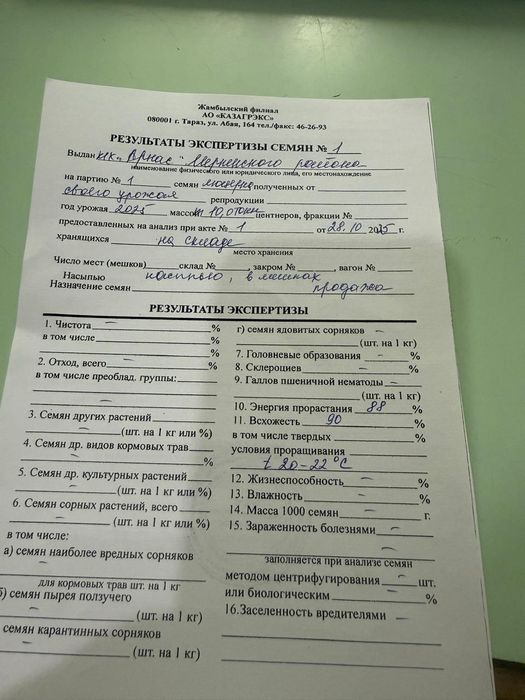 Жамбылский филиал
АО «КАЗАГРЭКС»
080001 г. Тараз, ул. Абая, 164 тел./факс: 46-26-93
РЕЗУЛЬТАТЫ ЭКСПЕРТИЗЫ СЕМЯН № 1
Выдан к/х „Арнас" Меркенского района
наименование физического или юридического лица, его местонахождение
на партию № 1 семян люцерна полученных от
своего урожая репродукции
год урожая 2025 массой 10,0 тонн центнеров, фракции №
предоставленных на анализ при акте № 1 от 28.10 2025 г.
хранящихся на складе
место хранения
Число мест (мешков) склад № , закром № , вагон №
Насыпью насыпью, в мешках
Назначение семян продажа
РЕЗУЛЬТАТЫ ЭКСПЕРТИЗЫ
1. Чистота – %
в том числе %
%
2. Отход, всего – %
в том числе преоблад. группы:
3. Семян других растений
– (шт. на 1 кг или %)
4. Семян др. видов кормовых трав
– %
5. Семян др. культурных растений
– (шт. на 1 кг или %)
6. Семян сорных растений, всего
– (шт. на 1 кг или %)
в том числе:
а) семян наиболее вредных сорняков
–
для кормовых трав шт. на 1 кг
б) семян пырея ползучего
– (шт. на 1 кг)
семян карантинных сорняков
– (шт. на 1 кг)
г) семян ядовитых сорняков –
(шт. на 1 кг)
7. Головневые образования – %
8. Склероциев – %
9. Галлов пшеничной нематоды –
(шт. на 1 кг)
10. Энергия прорастания 88 %
11. Всхожесть 90 %
в том числе твердых %
условия проращивания
t 20-22 °C
12. Жизнеспособность – %
13. Влажность – %
14. Масса 1000 семян – г.
15. Зараженность болезнями –
–
заполняется при анализе семян
методом центрифугирования – шт.
или биологическим – %
16. Заселенность вредителями –